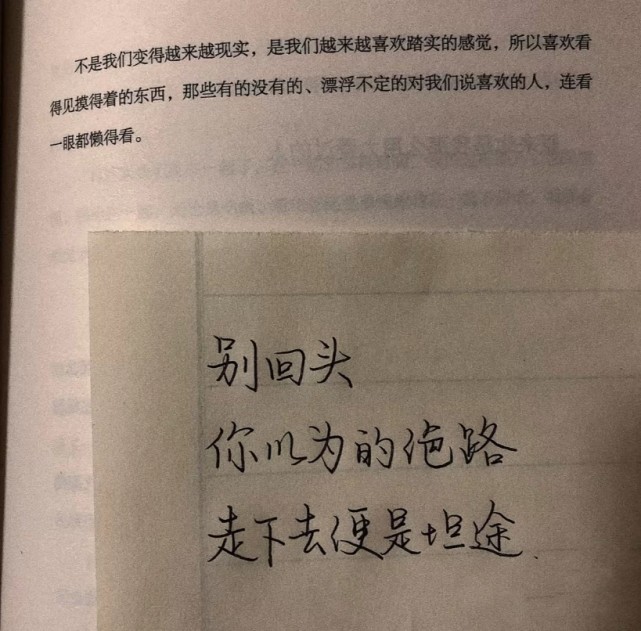 不是我们变得越来越现实，是我们越来越喜欢踏实的感觉，所以喜欢看
得见摸得着的东西，那些有的没有的、漂浮不定的对我们说喜欢的人，连看
一眼都懒得看。
别回头
你以为的绝路
走下去便是坦途.